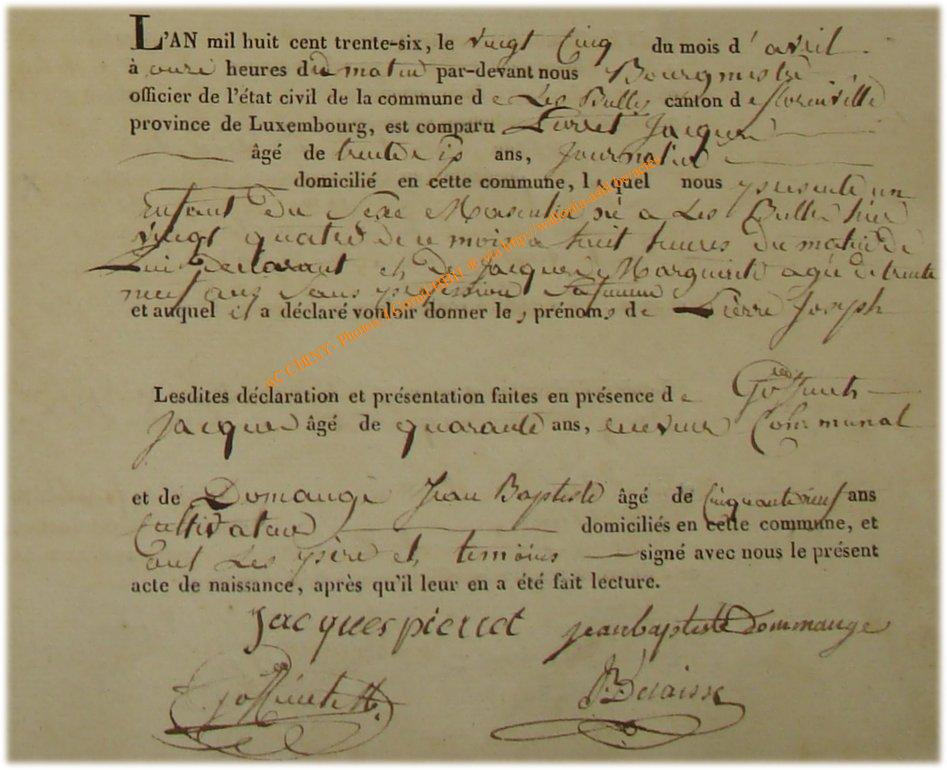 L'AN mil huit cent trente-six, le vingt Cinq du mois d' avril
à onze heures du matin par-devant nous Bourgmestre
officier de l'état civil de la commune de Les Bulles canton de florenville
province de Luxembourg, est comparu Pierret Jacques
âgé de trente Six ans, Journalier
domicilié en cette commune, lequel nous presente un
Enfant du Sexe Masculin né a Les Bulles hier
vingt quatre de ce mois a huit heures du matin de
Lui declarant et de Jacquemin Marguerite agée de trente
neuf ans Sans profession Sa femme
et auquel il a déclaré vouloir donner les prénoms de Pierre Joseph
Lesdites déclaration et présentation faites en présence de
Jacques âgé de quarante ans, receveur Communal
et de Domange Jean Baptiste âgé de Cinquante neuf ans
Cultivateur domiciliés en cette commune, et
Ont Les père et temoins signé avec nous le présent
acte de naissance, après qu'il leur en a été fait lecture.
Jacques pierret jeanbaptiste Dommange